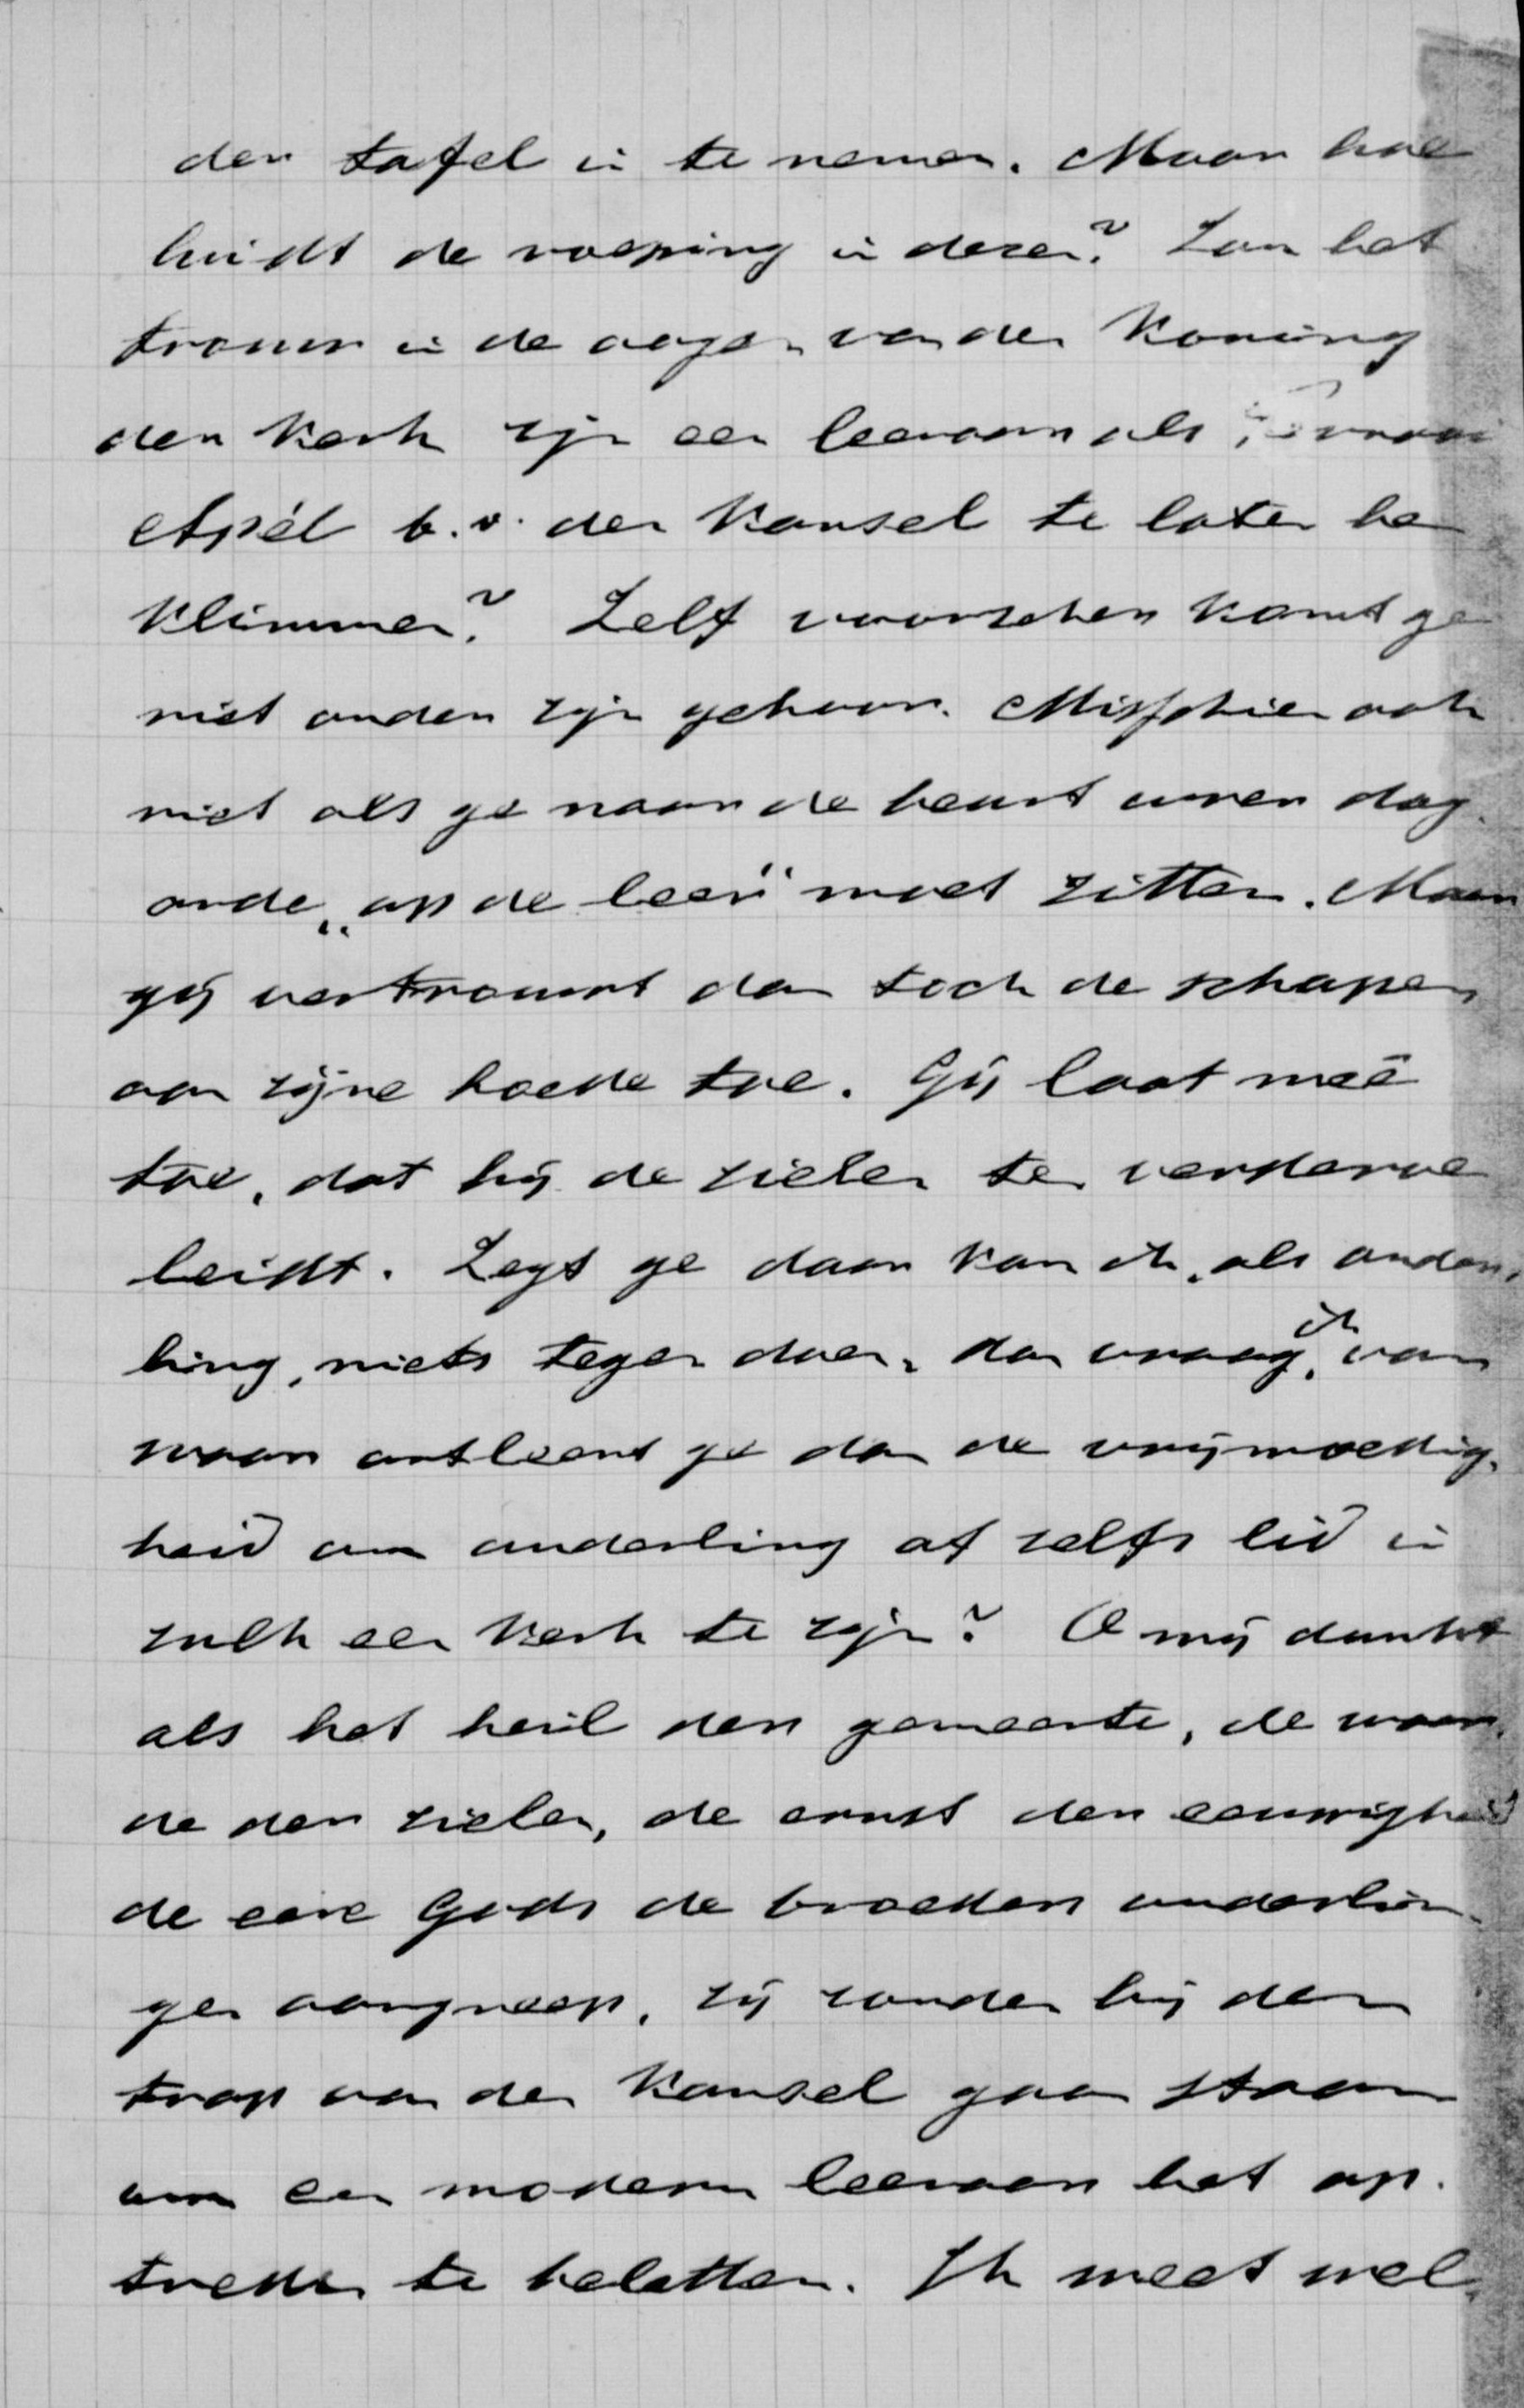 den tafel in te nemen. Maar hoe
luidt de roeping in dezen? Zou het
trouw in de oogen van den Koning
der Kerk zijn een leeraar als
Apél b.v. den Kansel te laten be
klimmen? Zelf waarschen komt ge
niet onder zijn gehoor. Misschien ook
niet als ge naar de beurt uwer dag
orde, "op de leer" moet zitten. Maar
gij vertrouwt dan toch de schapen
aan zijne hoede toe. Gij laat meê
toe, dat hij de zielen ten verderve
leidt. Zegt ge daar kan ik, als ouder-
ling, niets tegen doen, dan vraag ik, van
waar ontleent ge dan de vrijmoedig-
heid om ouderling of zelfs lid in
zulk een Kerk te zijn? O mij dunkt
als het heil der gemeente, de waar-
de der zielen, de ernst der eeuwigheid
de eere Gods de broeders ouderlin-
gen aangreep, zij zouden bij den
trap van den Kansel gaan staan
om een modern leeraar het op-
treden te beletten. Ik weet wel,